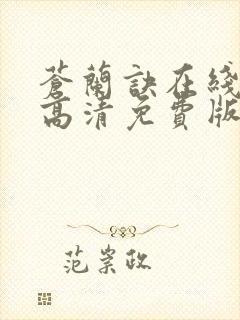 蒼蘭訣在綫
高清免費版
范崇政